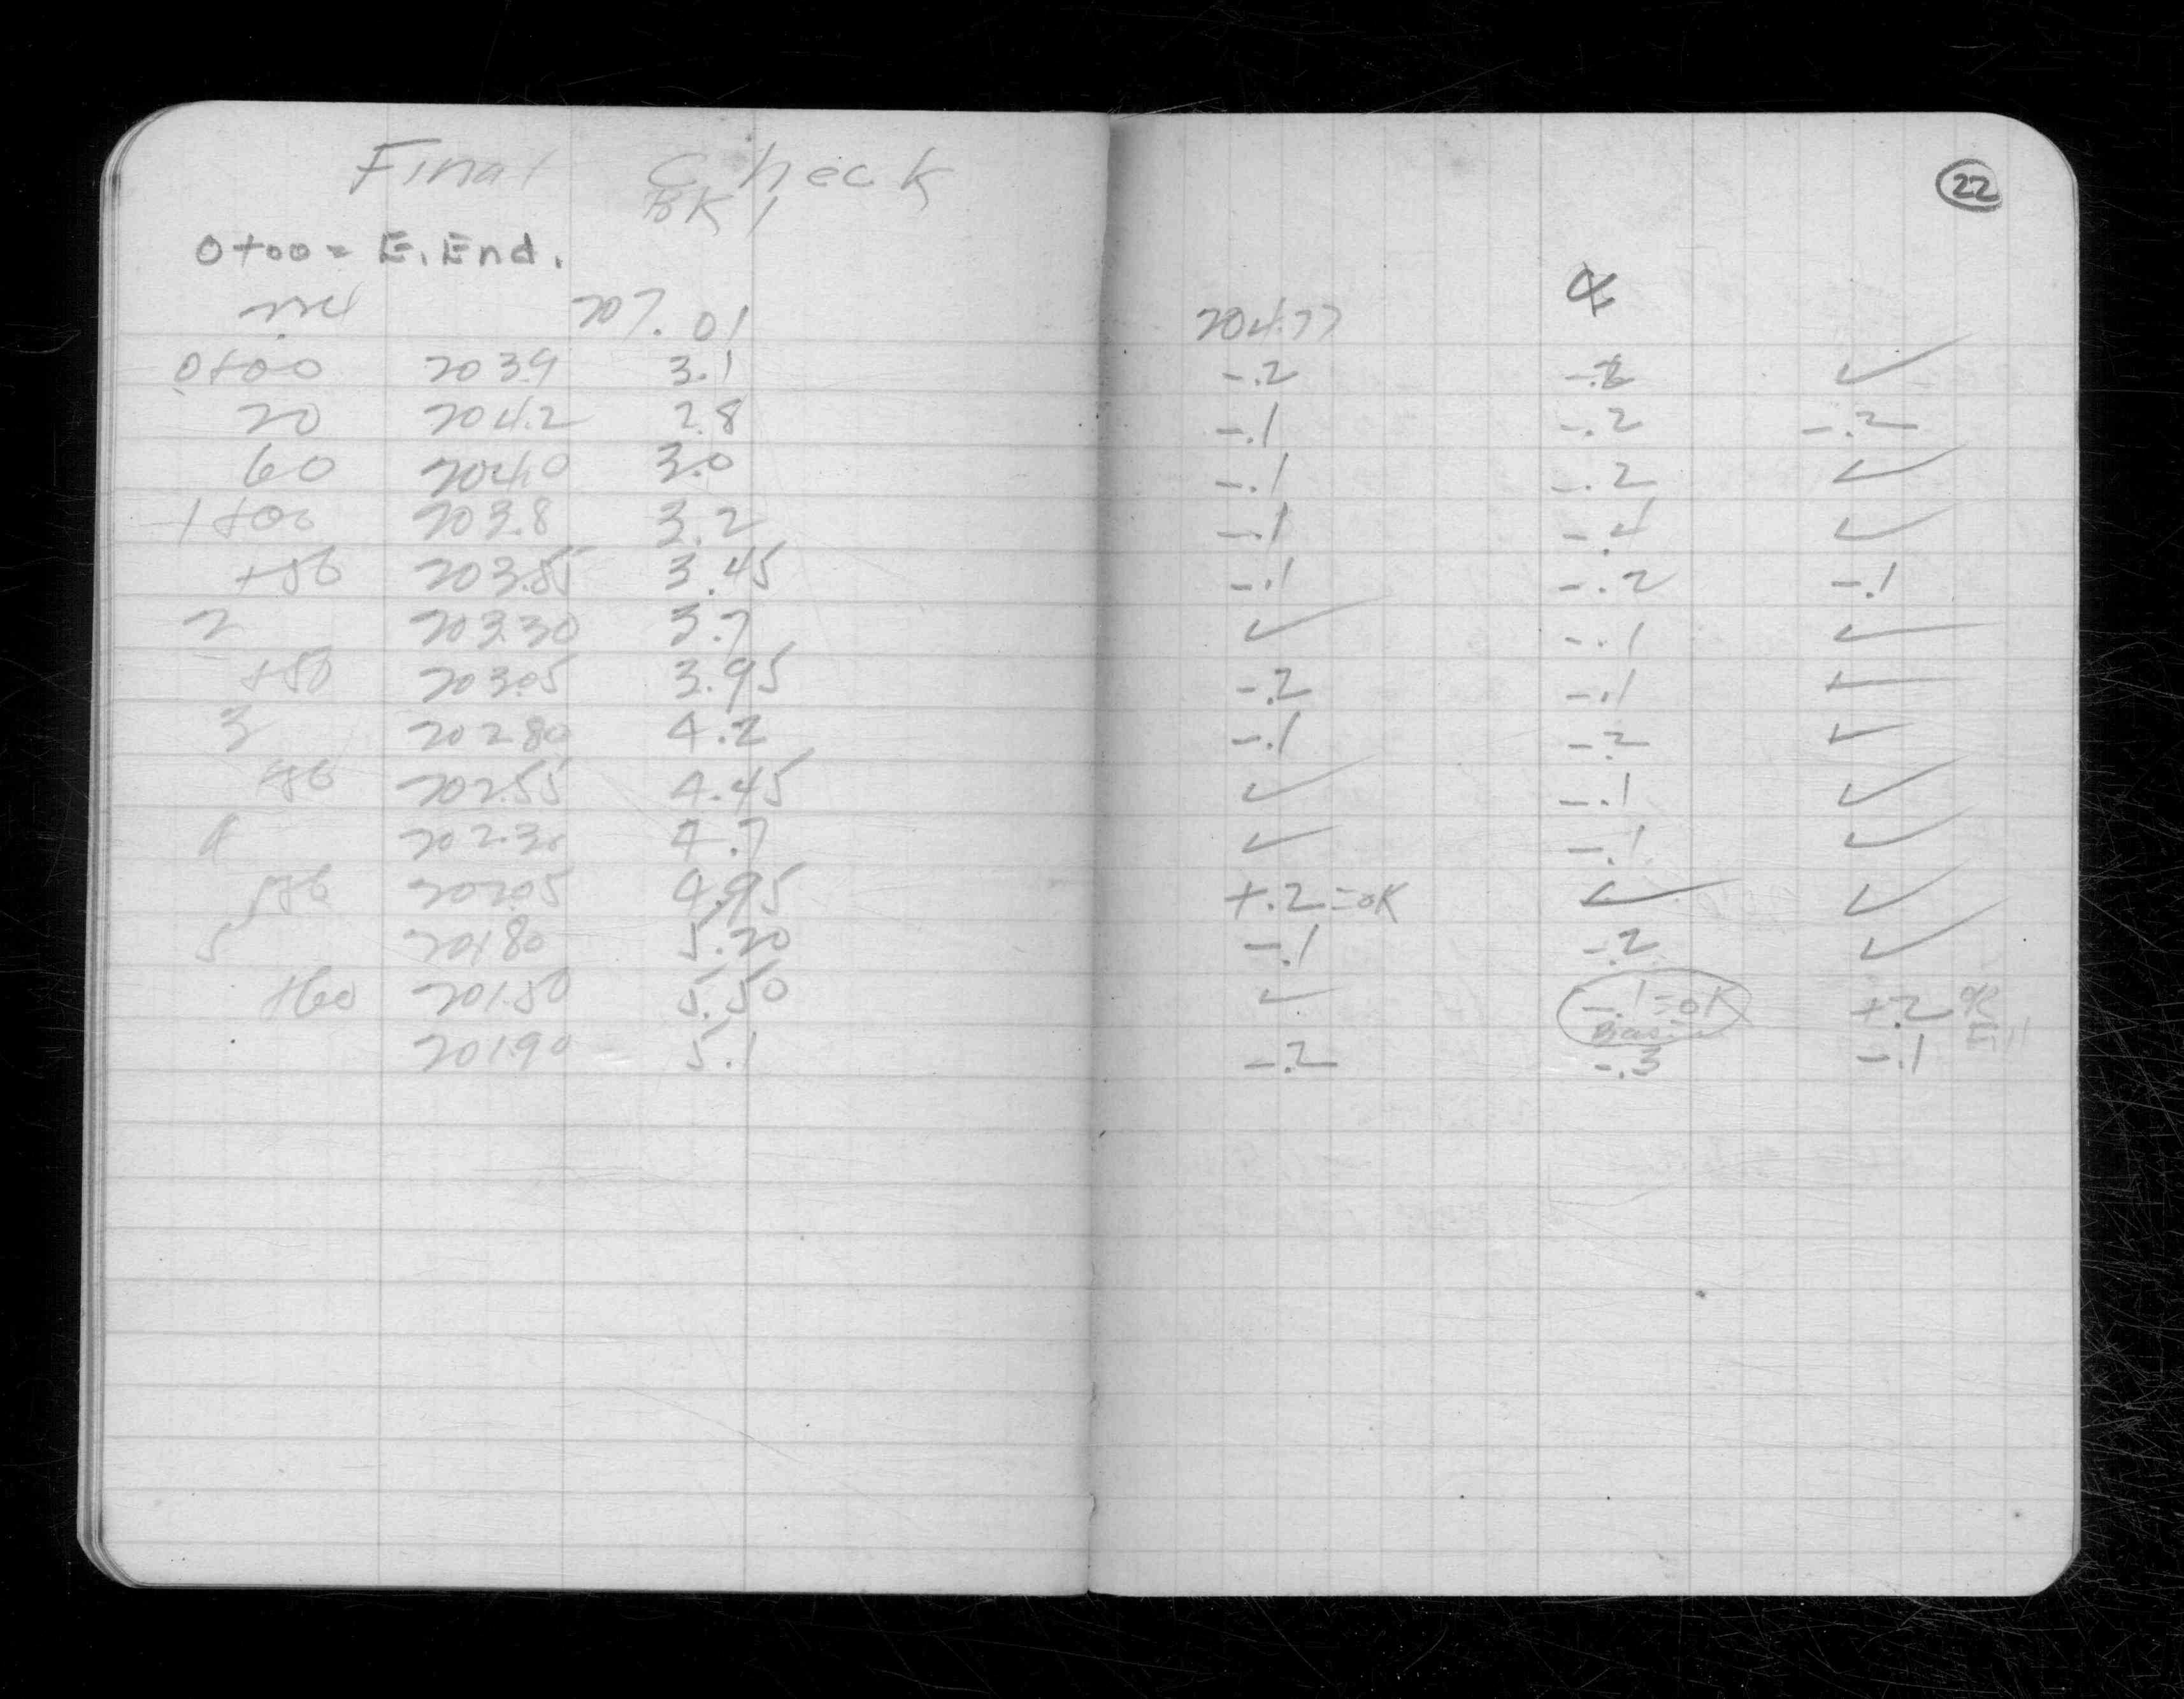 Final Check
BK 1
22
0+00 = E. End.
207.01 204.77 ℄
0+00 203.9 3.1 -.2 ✓
20 204.2 2.8 -.1 -.2 -.2
60 204.0 3.0 -.1 -.2 ✓
1+00 203.8 3.2 -.1 -.4 ✓
+50 203.55 3.45 -.1 -.2 -.1
2 203.30 3.7 ✓ -.1 ✓
+50 203.05 3.95 -.2 -.1 ✓
3 202.80 4.2 -.1 -.2 ✓
+50 202.55 4.45 ✓ -.1 ✓
4 202.30 4.7 ✓ -.1 ✓
+50 202.05 4.95 +.2=OK ✓ ✓
5 201.80 5.20 -.1 -.2 ✓
+60 201.50 5.50 ✓ -.1=OK +.2 OK
Basin Fill
201.90 5.1 -.2 -.3 -.1